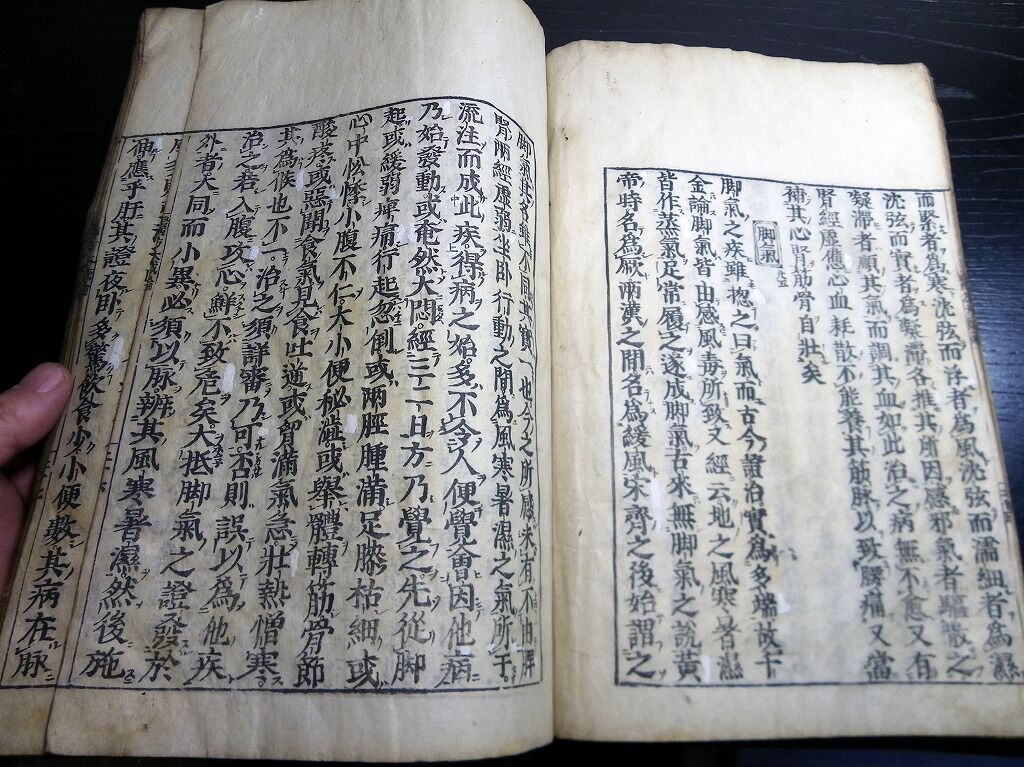 而緊者爲寒沈弦而浮者爲風沈弦而濡細者爲濕
沈弦而實者爲凝滯各推其所因感邪氣者驅散之
凝滯者順其氣而調其血如此治之病無不愈又有
腎經虛憊心血耗散不能養其筋脉以致腰痛又當
補其心腎筋骨自壯矣
脚氣
脚氣之疾雖揔之曰氣而古今證治實爲多端故千
金論脚氣皆由感風毒所致又經云地之風寒暑濕
皆作蒸氣足常履之遂成脚氣古來無脚氣之説黄
帝時名爲厥兩漢之間名爲緩風宋齊之後始謂之
脚氣其名雖不同其實一也今之所感未有不由脾
腎兩經虛弱坐卧行動之間爲風寒暑濕之氣所干
流注而成此疾得病之始多不令人便覺會因他病
乃始發動或奄然大悶經三二日方乃覺之先從脚
起或緩弱痺痛行起忽倒或兩脛腫滿足膝枯細或
心中忪悸小腹不仁大小便秘澁或擧體轉筋骨節
酸疼或惡聞食氣見食吐逆或胷滿氣急壯熱憎寒
其爲候也不一治之須詳審乃可否則誤以爲他疾
治之若入腹攻心鮮不致危矣大抵脚氣之證發於
外者大同而小異必須以脉辨其風寒暑濕然後施
神應乎肝其證夜卧多驚飲食少小便數其病在脉